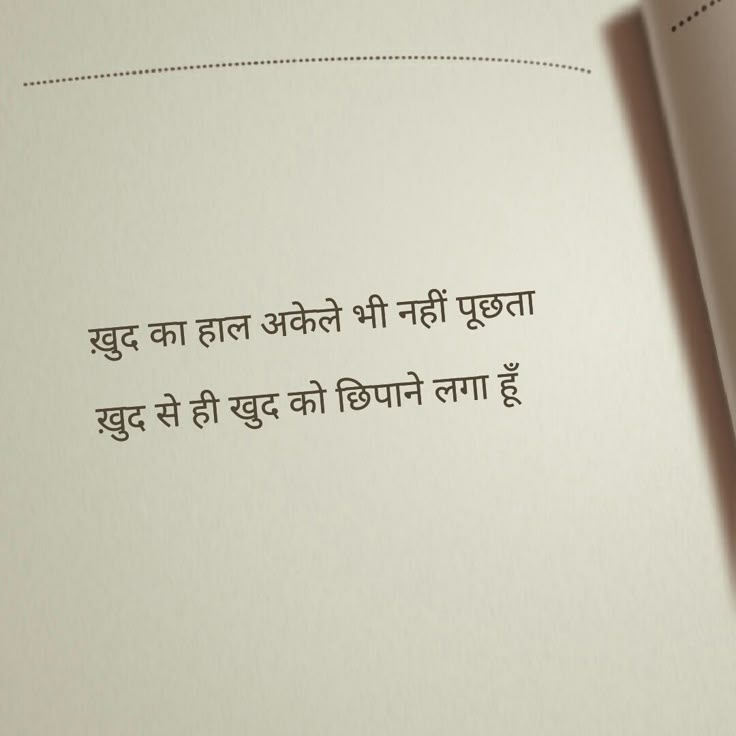 ख़ुद का हाल अकेले भी नहीं पूछता
ख़ुद से ही खुद को छिपाने लगा हूँ